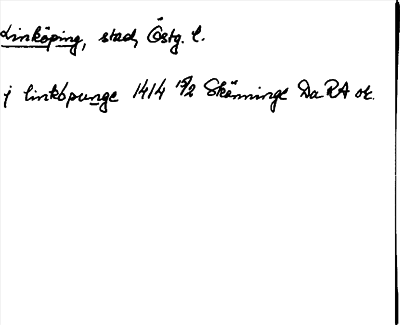 Linköping, stad, Östg. l.
j linköpunge 1414 19/2 Skänninge Da RA or.